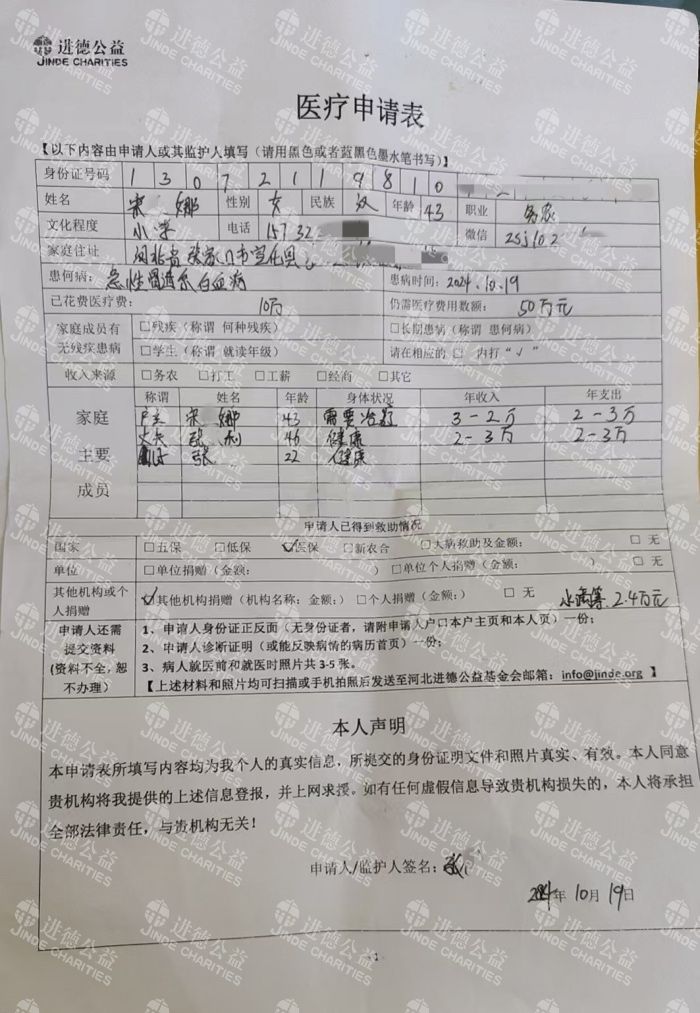 进德公益
JINDE CHARITIES
医疗申请表
【以下内容由申请人或其监护人填写（请用黑色或者蓝黑色墨水笔书写）】
身份证号码 1 3 0 7 2 1 1 9 8 1 0
姓名 宋 娜 性别 女 民族 汉 年龄 43 职业 务农
文化程度 小学 电话 15732 微信 zsj102
家庭住址 河北省张家口市宣化县
患何病：急性 白血病 患病时间：2024.10.19
已花费医疗费： 10万 仍需医疗费用数额： 50万元
家庭成员有无残疾患病 □残疾（称谓 何种残疾） □长期患病（称谓 患何病）
□学生（称谓 就读年级） 请在相应的 □ 内打“√”
收入来源 □务农 □打工 □工薪 □经商 □其它
家庭主要成员 称谓 姓名 年龄 身体状况 年收入 年支出
户主 宋 娜 43 需要治疗 3-2万 2-3万
丈夫 张 利 46 健康 2-3万 2-3万
张 22 健康
申请人已得到救助情况
国家 □五保 □低保 √医保 □新农合 □大病救助及金额： □ 无
单位 □单位捐赠（金额： ） □单位个人捐赠（金额： ） □ 无
其他机构或个人捐赠 √其他机构捐赠（机构名称；金额：） □个人捐赠（金额：） □ 无 水滴筹 2.4万元
申请人还需提交资料（资料不全，恕不办理）
1、申请人身份证正反面（无身份证者，请附申请人户口本户主页和本人页）一份；
2、申请人诊断证明（或能反映病情的病历首页）一份；
3、病人就医前和就医时照片共 3-5 张。
【上述材料和照片均可扫描或手机拍照后发送至河北进德公益基金会邮箱：info@jinde.org 】
本人声明
本申请表所填写内容均为我个人的真实信息，所提交的身份证明文件和照片真实、有效。本人同意
贵机构将我提供的上述信息登报，并上网求援。如有任何虚假信息导致贵机构损失的，本人将承担
全部法律责任，与贵机构无关！
申请人/监护人签名：张
2024年 10月 19日
- 1 -